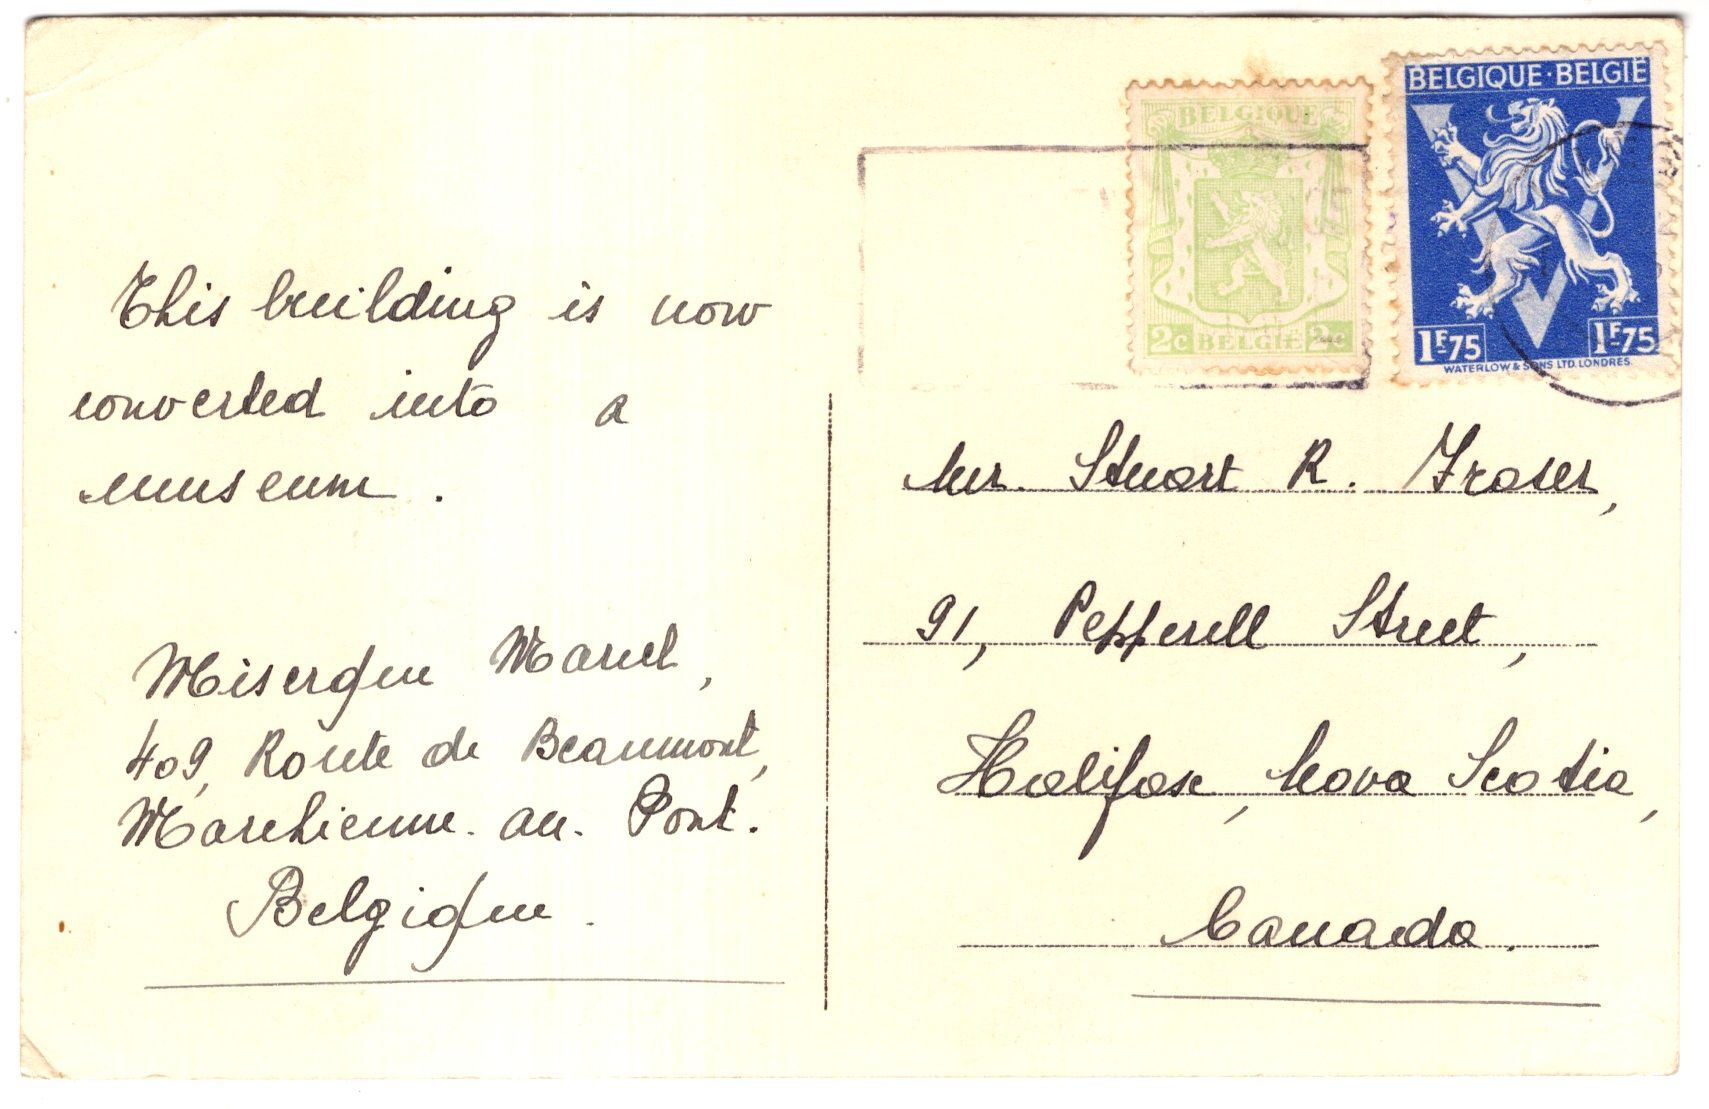 This building is now
converted into a
museum.
Miserque Marcel,
409, Route de Beaumont,
Marchienne. au. Pont.
Belgique.
BELGIQUE
2c BELGIË 2c
BELGIQUE·BELGIË
1F75 1F75
WATERLOW & SONS LTD. LONDRES.
Mr. Stuart R. Fraser,
91, Pepperell Street,
Halifax, Nova Scotia,
Canada.